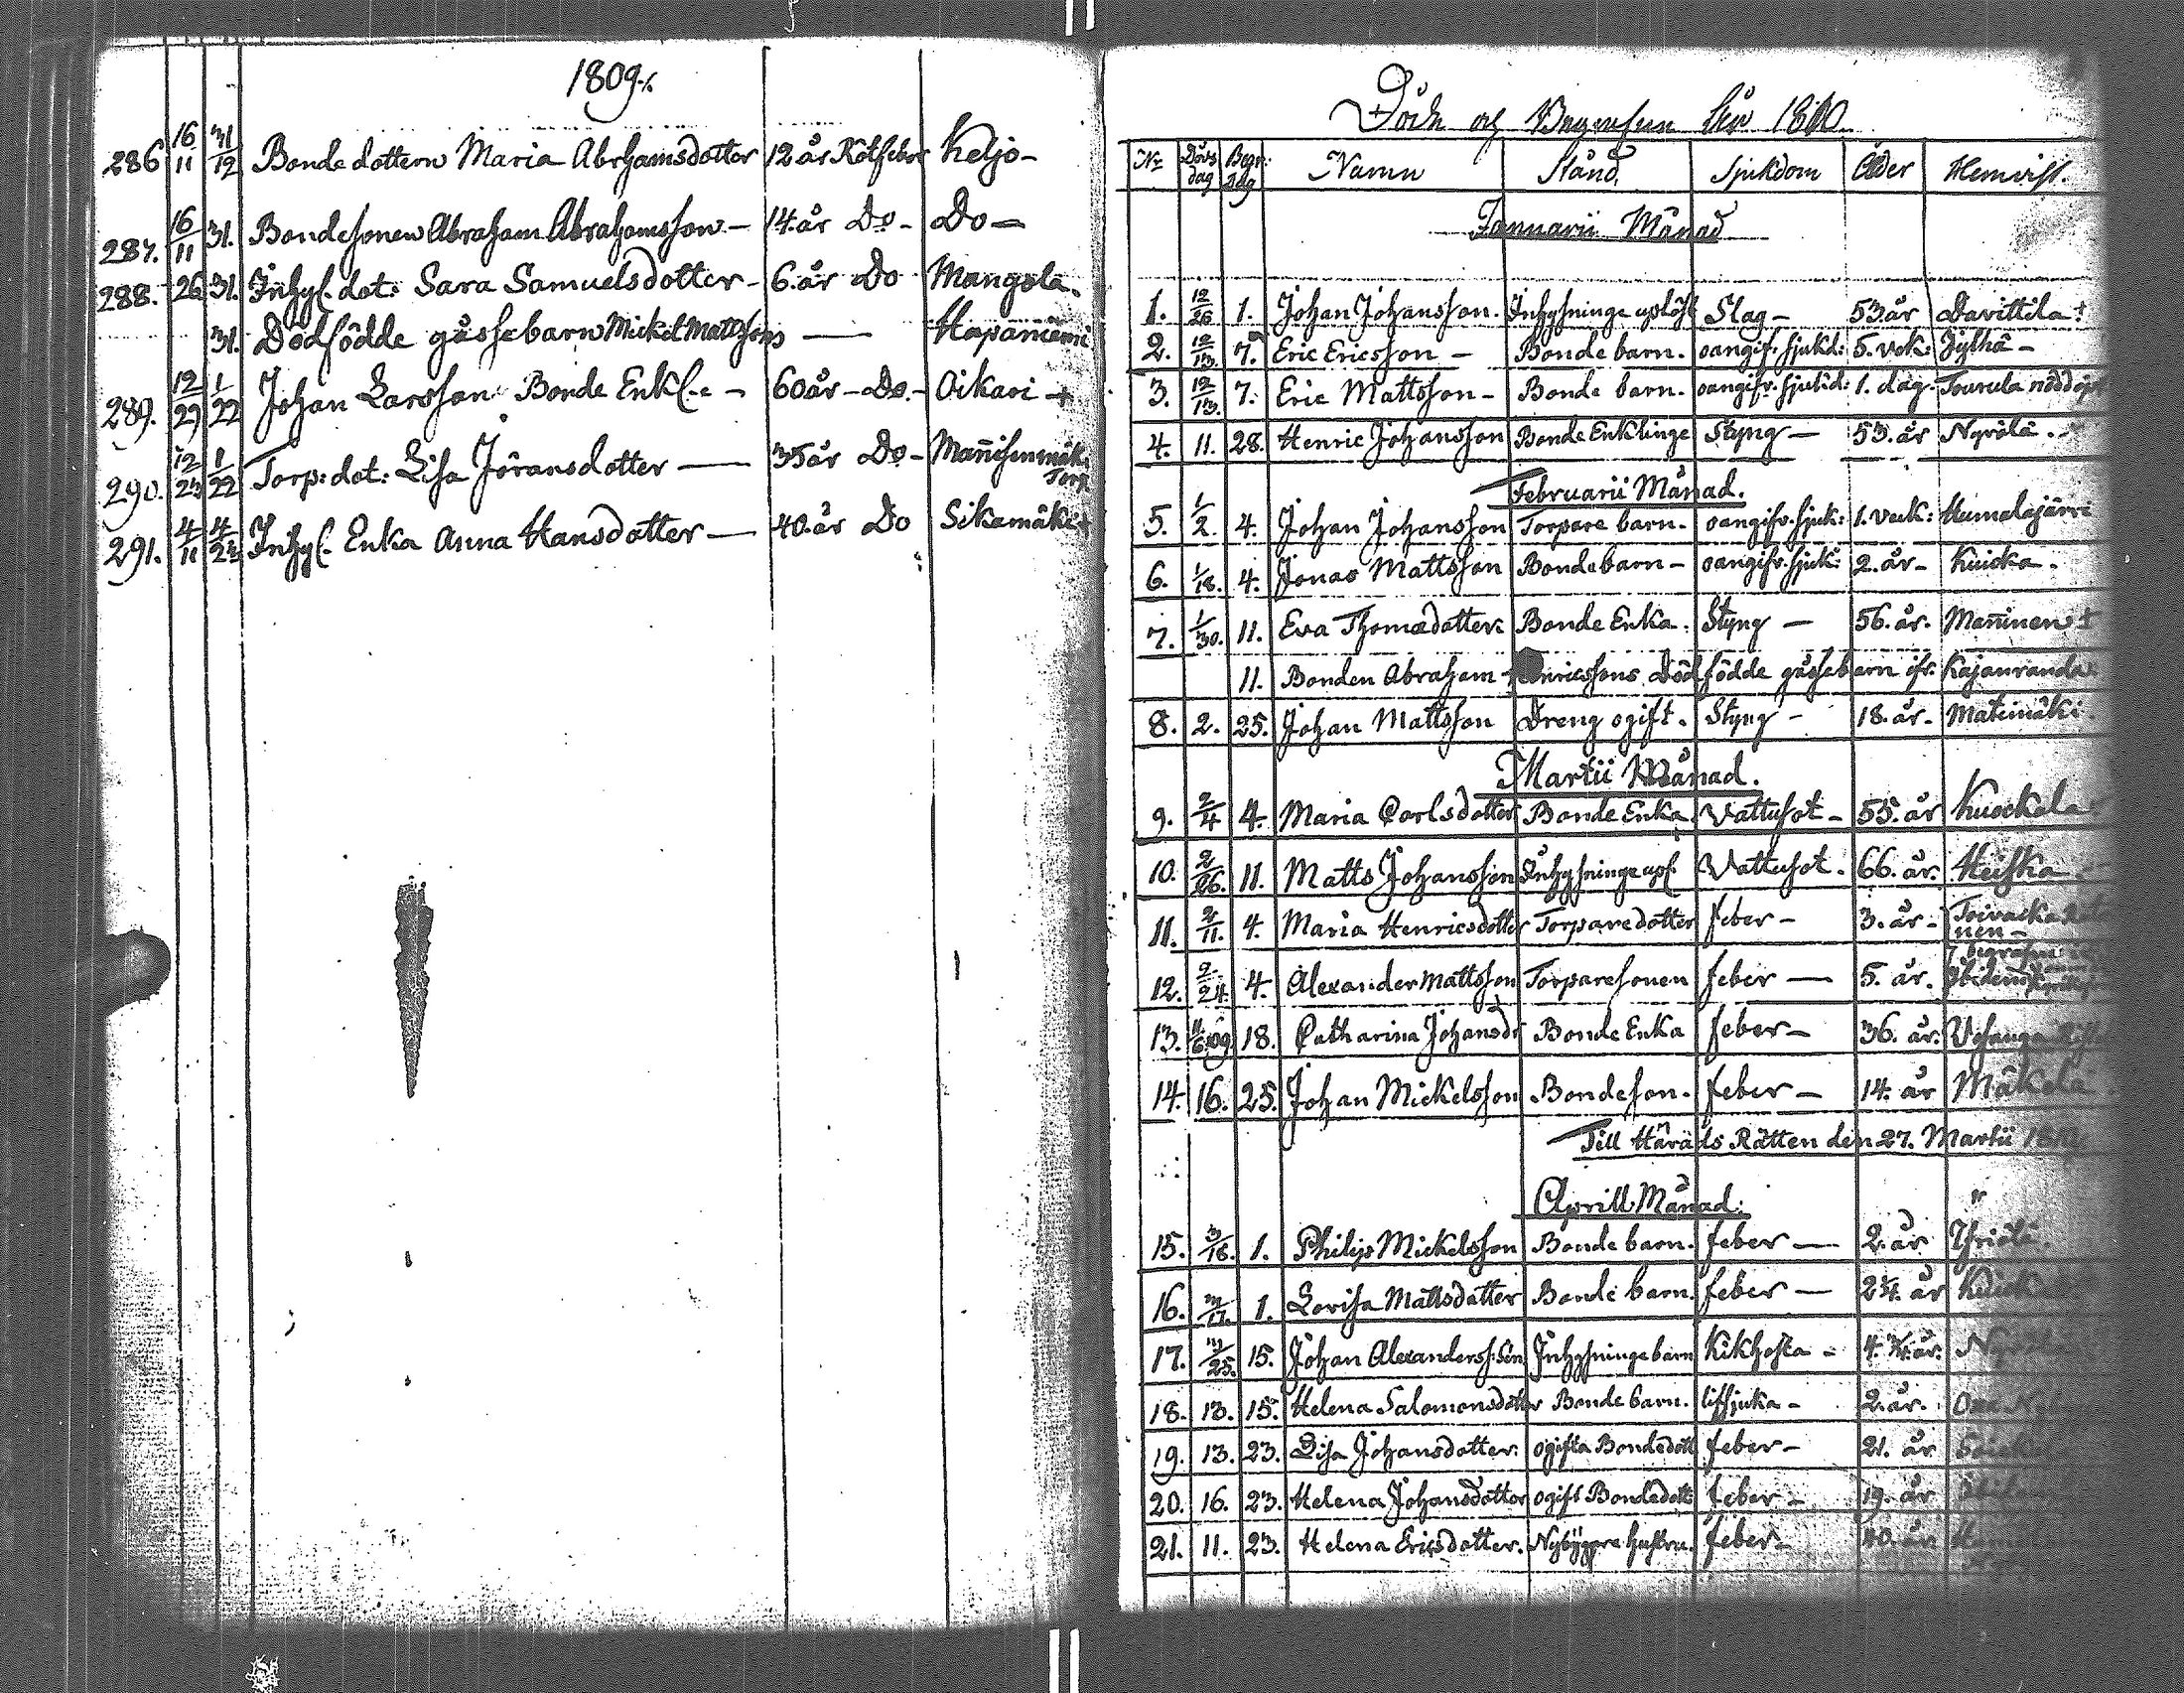 1809.
286 16/11 31/12 Bonde dottern Maria Abrhamsdotter 12 år Rötfeber Keljo-
287. 16/11 31. Bondesonen Abraham Abrahamsson - 14. år Do - Do -
288. 26 31. Inhys. dot: Sara Samuelsdotter - 6. år Do Mangola.
31. Dödfödde gåssebarn Mickel Mattssons — Hapaniemi
289. 12/29 1/22 Johan Larsson Bonde Enkl. - 60 år - Do. - Oikari +
290. 12/23 1/22 Torp: dot: Lisa Jöransdotter — 35 år Do - Mañisenmäki Torp
291. 4/11 4/22 Inhys. Enka Anna Hansdotter — 40. år Do Sikamäki +
Döde och Begrafne år 1810
No Döds dag Begr: dag Namn Stånd. Sjukdom Ålder Hemvist.
Januarii Månad
1. 12/26 1. Johan Johansson. Inhysninge Slag - 53. år Davittila +
2. 12/13. 7. Eric Ericsson - Bonde barn. oangif. sjukd: 5. vek: Jylhä -
3. 12/13. 7. Eric Mattsson - Bonde barn. oangifv. sjukd: 1. dag. Tourula nöddöpt
4. 11. 28. Henric Johansson Bonde Enklinge Styng — 53. år Nyrölä.
Februarii Månad.
5. 1/2. 4. Johan Johansson Torpare barn. oangifv. sjuk: 1. veck: Humalajärvi
6. 1/18. 4. Jonas Mattsson Bonde barn - oangifv. sjuk: 2. år - Kuicka.
7. 1/30. 11. Eva Thomædotter Bonde Enka. Styng — 56. år. Mañinen +
11. Bonden Abraham Henricssons Död födde gåssebarn ifr. Kajanranda
8. 2. 25. Johan Mattsson Dreng ogift. Styng - 18. år. Matimäki.
Martii Månad.
9. 2/4 4. Maria Carlsdotter Bonde Enka Vattusot - 55. år Kuockala
10. 2/26. 11. Matts Johansson Inhysninge Vattusot. 66. år. Heiska
11. 2/11. 4. Maria Henricsdotter Torparedotter feber - 3. år - Toivacka
nen -
12. 2/24. 4. Alexander Mattsson Torparesonen feber — 5. år. Ibidem
13. 11/6 1809 18. Catharina Johansdr Bonde Enka feber - 36. år. Vesanga
14. 16. 25. Johan Mickelsson Bondeson. feber - 14. år Mäkelä
Till Härads Rätten den 27. Martii 1810
Aprill Månad.
15. 3/18. 1. Philip Mickelsson Bonde barn. feber — 2. år
16. 3/17. 1. Lovisa Mattsdotter Bonde barn. feber — 2 1/4. år
17. 3/25. 15. Johan Alexanderss: Son Inhysninge barn Kikhosta - 4. 3/4. år.
18. 13. 15. Helena Salomonsdotter Bonde barn. lifsjuka - 2. år.
19. 13. 23. Lisa Johansdotter. ogifta Bondedott feber - 21. år
20. 16. 23. Helena Johansdotter ogift Bondedott feber - 19. år
21. 11. 23. Helena Ericsdotter. Nybyggare hustru. feber - 40. år